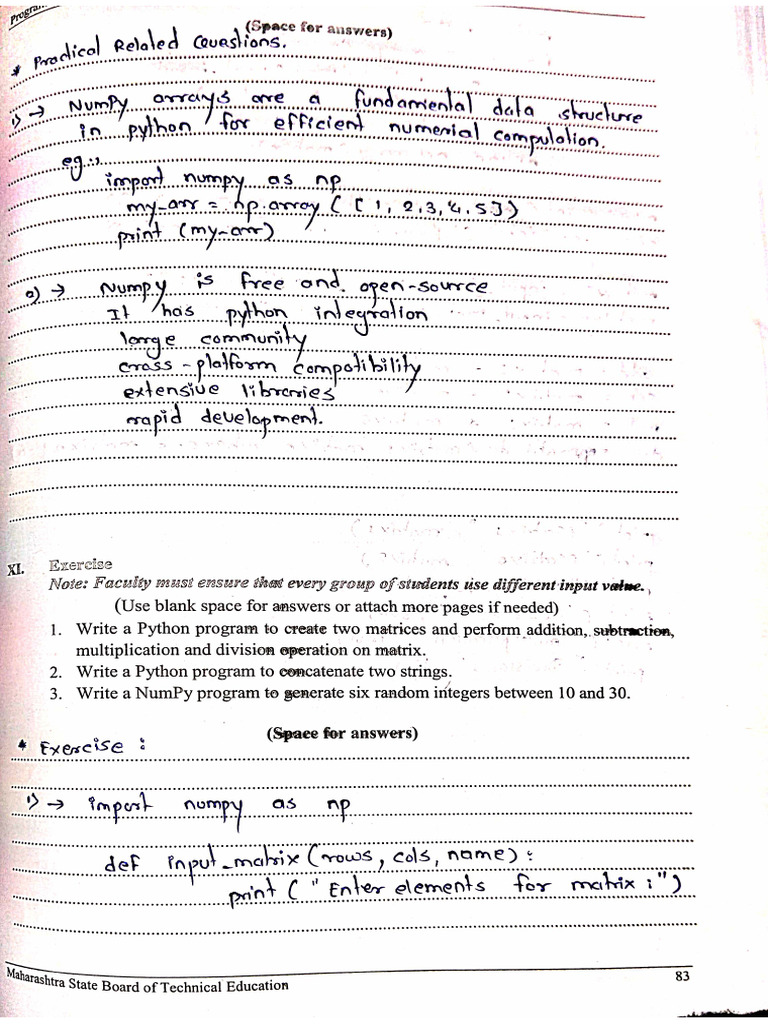 Program
(Space for answers)
* Practical Related Questions.
1) → NumPy arrays are a fundamental data structure
in python for efficient numerial compulation.
eg.,
import numpy as np
my_arr = np.array ( [ 1, 2, 3, 4, 5 ] )
print (my_arr)
2) → Numpy is free and open-source
It has python integration
large community
cross-platform compatibility
extensive libreries
rapid development.
XI. Exercise
Note: Faculty must ensure that every group of students use different input value.
(Use blank space for answers or attach more pages if needed)
1. Write a Python program to create two matrices and perform addition, subtraction,
multiplication and division operation on matrix.
2. Write a Python program to concatenate two strings.
3. Write a NumPy program to generate six random integers between 10 and 30.
(Space for answers)
* Exercise :
1) → import numpy as np
def input_matrix (rows, cols, name) :
print ( "Enter elements for matrix :")
Maharashtra State Board of Technical Education
83